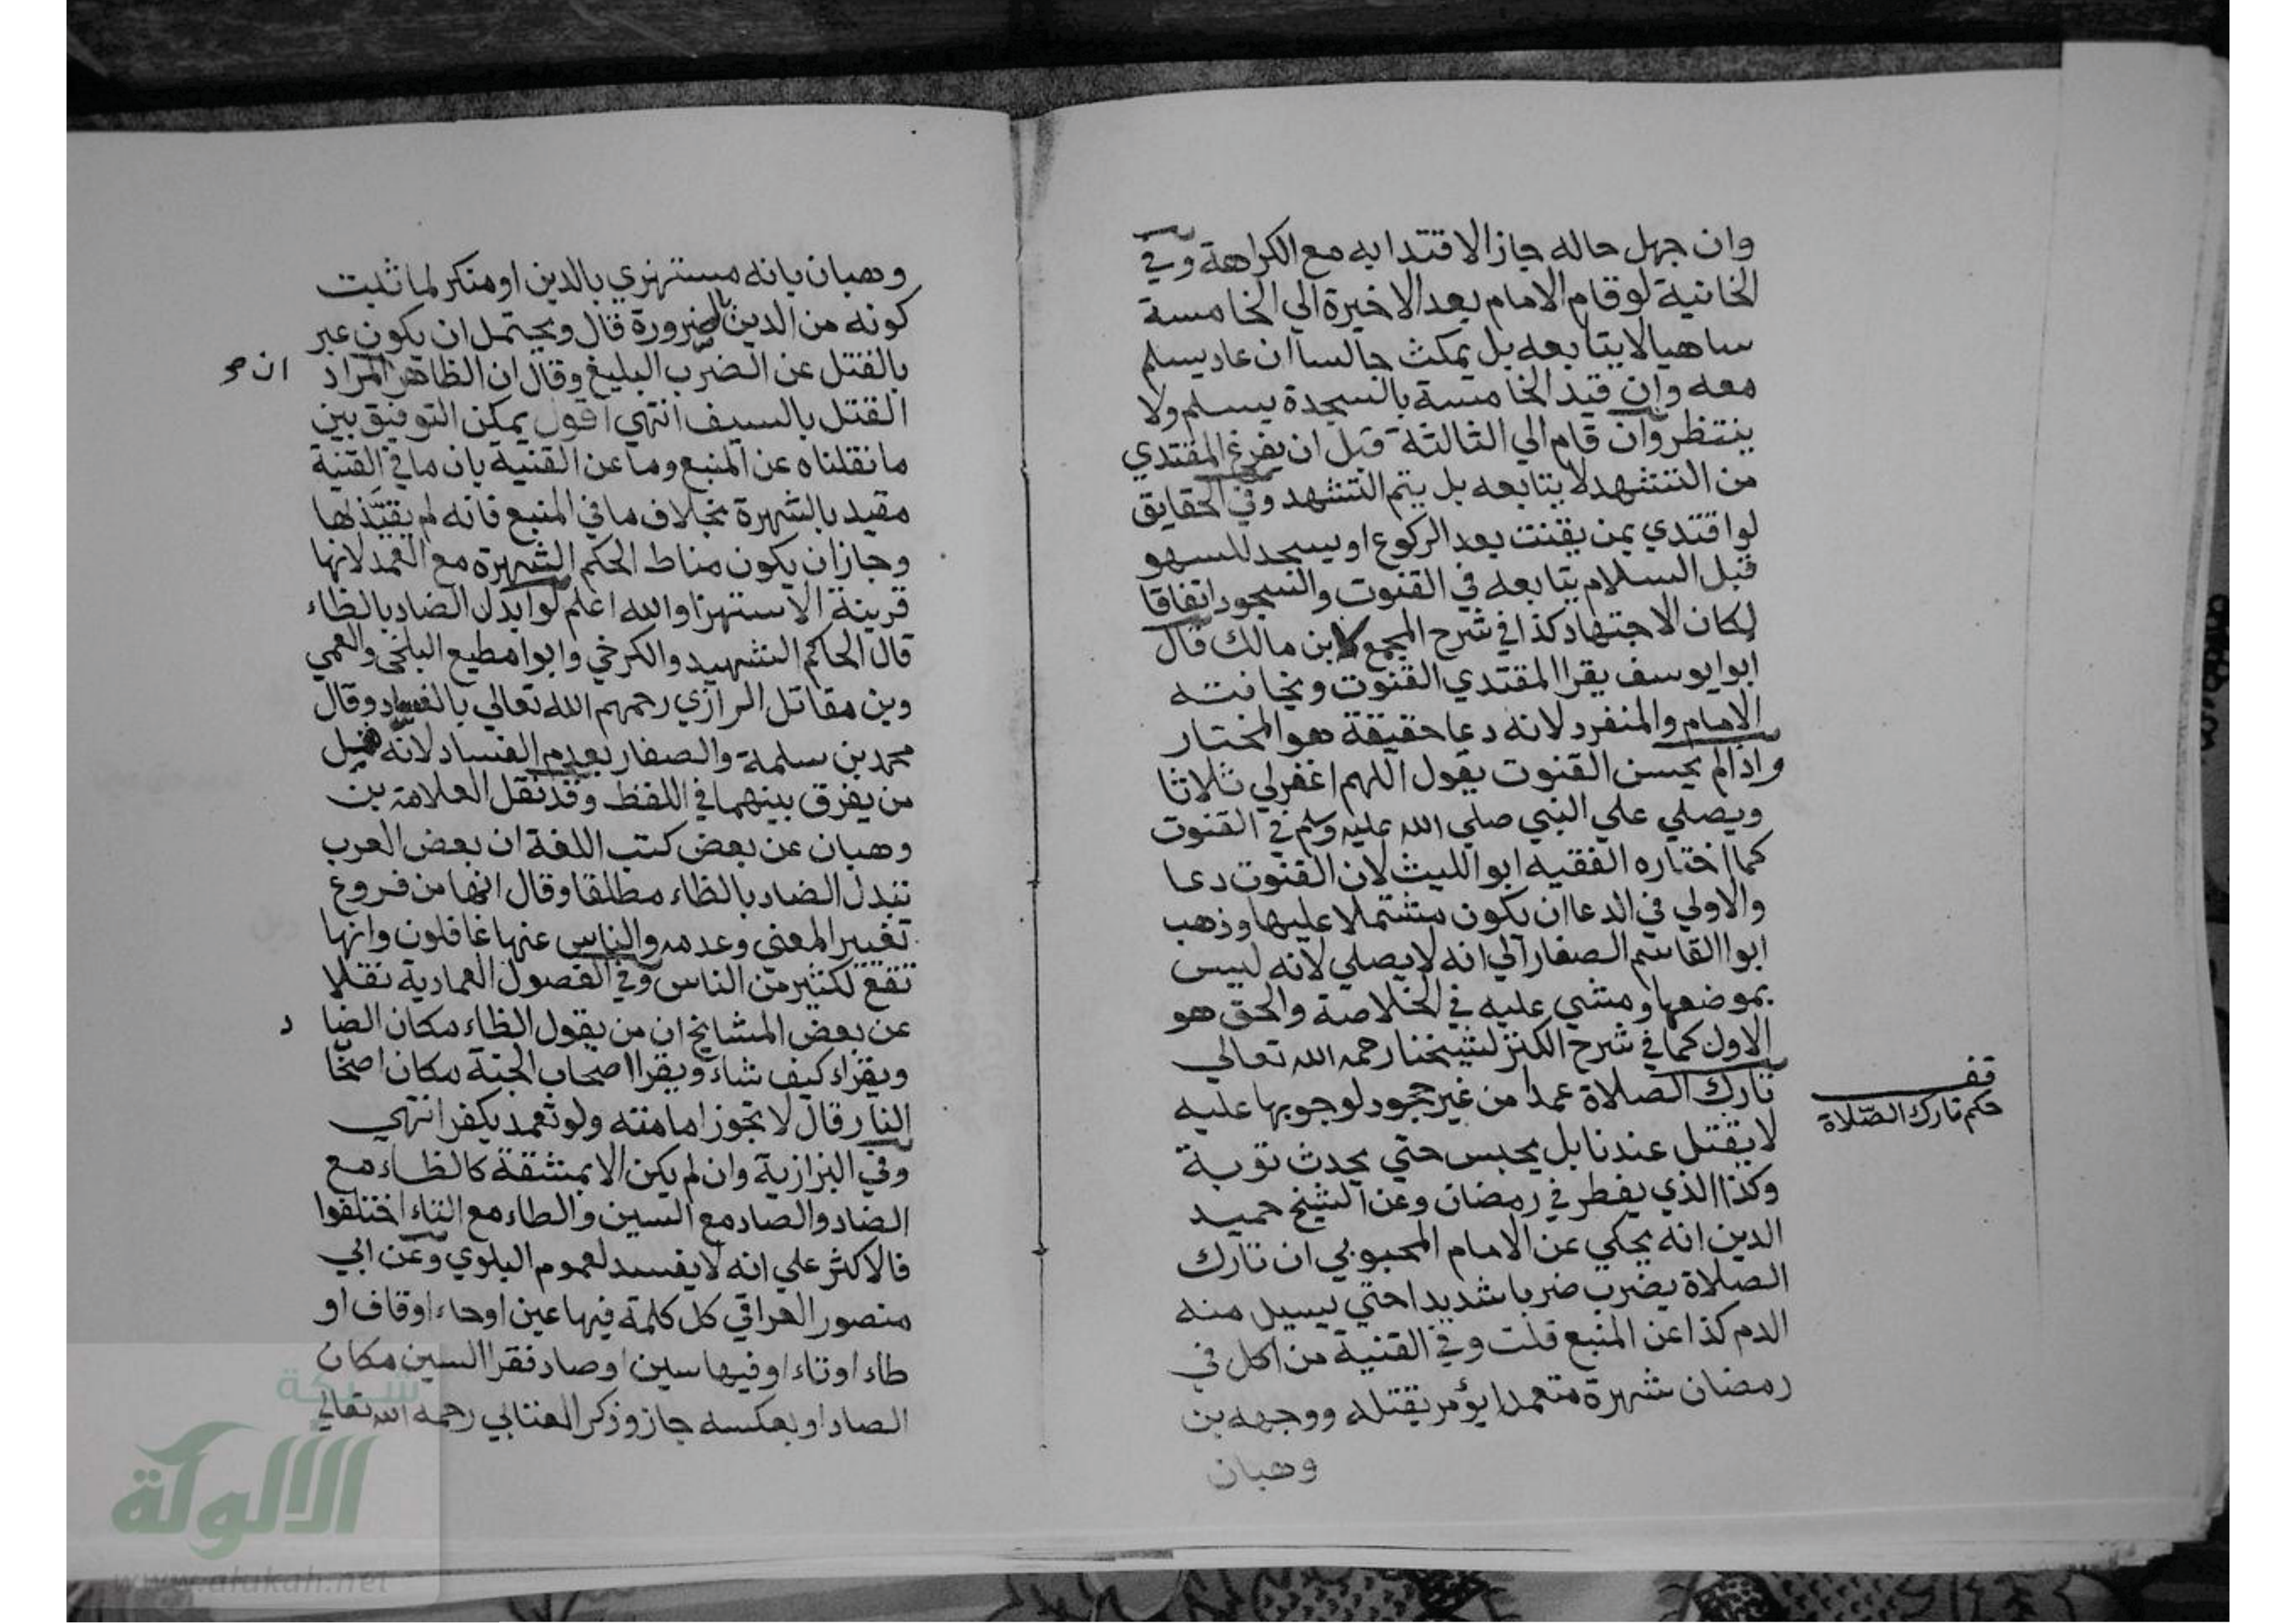 وان جهل حاله جاز الاقتدا به مع الكراهة وفي
الخانية لو قام الامام بعد الاخيرة الي الخامسة
ساهيا لا يتابعه بل يمكث جالسا ان عاد يسلم
معه وان قيد الخامسة بالسجدة يسلم ولا
ينتظر وان قام الي الثالثة قبل ان يفرغ المقتدي
من التشهد لا يتابعه بل يتم التشهد وفي الحقايق
لو اقتدي بمن يقنت بعد الركوع او يسجد للسهو
قبل السلام يتابعه في القنوت والسجود اتفاقا
لكان الاجتهاد كذا في شرح المجمع لابن مالك قال
ابوا يوسف يقرا المقتدي القنوت ويخافته
الامام والمنفرد لانه دعا حقيقة هو المختار
واذا لم يحسن القنوت يقول اللهم اغفرلي ثلاثا
ويصلي علي النبي صلي الله عليه وسلم في القنوت
كما اختاره الفقيه ابوا الليث لان القنوت دعا
والاولي في الدعا ان يكون مشتملا عليها وذهب
ابوا القاسم الصفار الي انه لا يصلي لانه ليس
بموضعها ومشي عليه في الخلاصة والحق هو
الاول كما في شرح الكنز لشيخنا رحمه الله تعالي
تارك الصلاة عمدا من غير جحود لوجوبها عليه
لا يقتل عندنا بل يحبس حتي يحدث توبة
وكذا الذي يفطر في رمضان وعن الشيخ حميد
الدين انه يحكي عن الامام المحبوبي ان تارك
الصلاة يضرب ضربا شديدا حتي يسيل منه
الدم كذا عن المنبع قلت وفي القنية من اكل في
رمضان شهرة متعمدا يؤمر بقتله ووجهه بن
وهبان
قف
حكم تارك الصّلاة
وهبان بانه مستهزي بالدين او منكر لما ثبت
كونه من الدين بالضرورة قال ويحتمل ان يكون عبر
بالقتل عن الضرب البليغ وقال ان الظاهر المراد
ان صح
القتل بالسيف انتهي اقول يمكن التوفيق بين
ما نقلناه عن المنبع وما عن القنية بان ما في القنية
مقيد بالشهرة بخلاف ما في المنبع فانه لم يقيّد لها
وجاز ان يكون مناط الحكم الشهرة مع العمد لانها
قرينة الاستهزا والله اعلم لو ابدل الضاد بالظاء
قال الحاكم الشهيد والكرخي وابوا مطيع البلخي والعمي
وبن مقاتل الرازي رحمهم الله تعالي بالفساد وقال
محمد بن سلمة والصفار بعدم الفساد لانّه قليل
من يفرق بينهما في اللفظ وقد نقل العلامة بن
وهبان عن بعض كتب اللغة ان بعض العرب
تبدل الضاد بالظاء مطلقا وقال انها من فروع
تغيير المعني وعدمه والناس عنها غافلون وانها
تقع لكثير من الناس وفي الفصول العمادية نقلا
عن بعض المشايخ ان من يقول الظاء مكان الضا
د
ويقراء كيف شاء ويقرا اصحاب الجنة مكان اصحا
النار قال لا تجوز امامته ولو تعمد يكفر انتهي
وفي البزازية وان لم يكن الا بمشقة كالظاء مع
الضاد والصاد مع السين والطاء مع التاء اختلفوا
فالاكثر علي انه لا يفسد لعموم البلوي وعن ابي
منصور العراقي كل كلمة فيها عين او حاء او قاف او
طاء او تاء او فيها سين او صاد فقرا السين مكان
الصاد او بعكسه جاز وذكر العتابي رحمه الله تعالي
شبكة
الألوكة
www.alukah.net